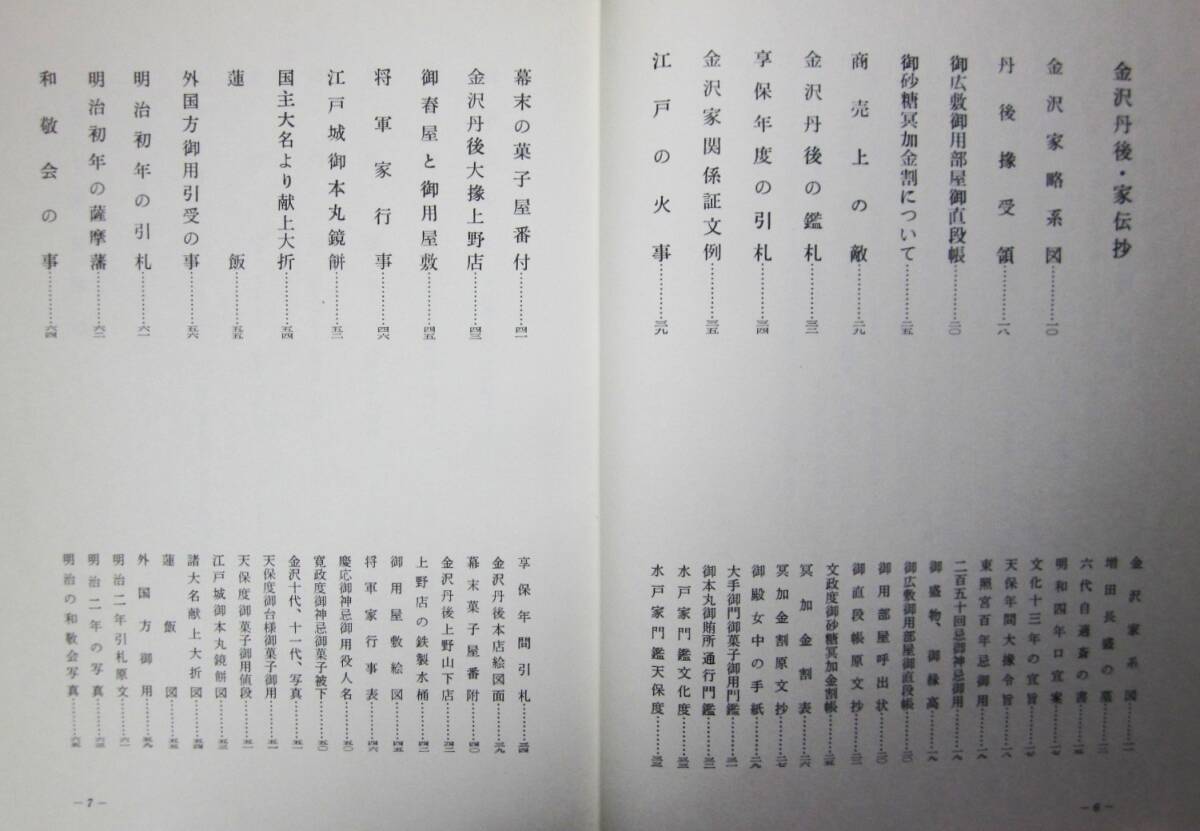 金沢丹後・家伝抄
金沢家略系図…………一〇
丹後掾受領…………一八
御広敷御用部屋御直段帳…………二〇
御砂糖冥加金割について…………二五
商売上の敵…………二九
金沢丹後の鑑札…………三二
享保年度の引札…………三四
金沢家関係証文例…………三五
江戸の火事…………三九
金沢家系図…………一一
増田長盛の墓…………一二
六代自適斎の書…………一五
明和四年口宣案…………一七
文化十三年の宣旨…………一七
天保年間大掾令旨…………一八
東照宮百年忌御用…………一八
二百五十回忌御神忌御用
御盛物、御縁高…………一九
御広敷御用部屋御直段帳…………二〇
御用部屋呼出状…………二〇
御直段帳原文抄…………二二
文政度御砂糖冥加金割帳…………二五
冥加金割表…………二六
冥加金割原文抄…………二七
御殿女中の手紙…………二九
大手御門御菓子御用門鑑…………三一
御本丸御賄所通行門鑑…………三二
水戸家門鑑文化度…………三三
水戸家門鑑天保度…………三三
－6－
幕末の菓子屋番付…………四一
金沢丹後大掾上野店…………四三
御春屋と御用屋敷…………四五
将軍家行事…………四六
江戸城御本丸鏡餅…………五二
国主大名より献上大折…………五四
蓮飯…………五五
外国方御用引受の事…………五六
明治初年の引札…………六一
明治初年の薩摩藩…………六二
和敬会の事…………六四
享保年間引札…………三四
金沢丹後本店絵図面…………三九
幕末菓子屋番附…………四〇
金沢丹後上野山下店…………四二
上野店の鉄製水桶…………四二
御用屋敷絵図…………四五
将軍家行事表…………四六
慶応御神忌御用役人名…………五〇
寛政度御神忌御菓子被下…………五〇
金沢十代、十一代、写真…………五一
天保度御台様御菓子御用…………五一
天保度御菓子御用値段…………五一
江戸城御本丸鏡餅図…………五三
諸大名献上大折図…………五四
蓮飯図…………五五
外国方御用…………五九
明治二年引札原文…………六一
明治二年の写真…………六三
明治の和敬会写真…………六五
－7－